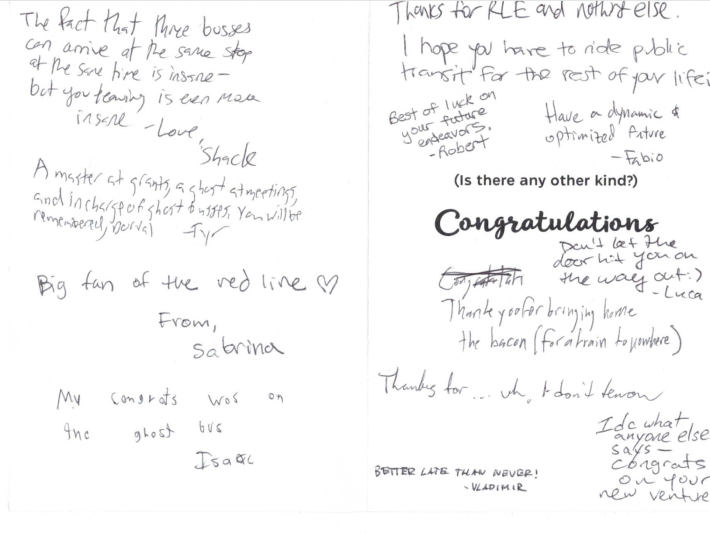 The fact that three busses
can arrive at the same stop
at the same time is insane –
but you leaving is even more
insane
-Love,
Shack
A master at grants, a ghost at meetings,
and in charge of ghost busses, You will be
remembered, Dorval
-Tyr
Big fan of the red line ♡
From,
Sabrina
My congrats was on
the ghost bus
Isaac
Thanks for RLE and nothing else.
I hope you have to ride public
transit for the rest of your life
Best of luck on
your future
endeavors.
-Robert
Have a dynamic &
optimized future
-Fabio
(Is there any other kind?)
Congratulations
Don't let the
door hit you on
the way out :)
-Luca
Thank you for bringing home
the bacon (for a train to nowhere)
Thanks for... uh, I don't know
Idc what
anyone else
says –
congrats
on your
new venture
BETTER LATE THAN NEVER!
-VLADIMIR